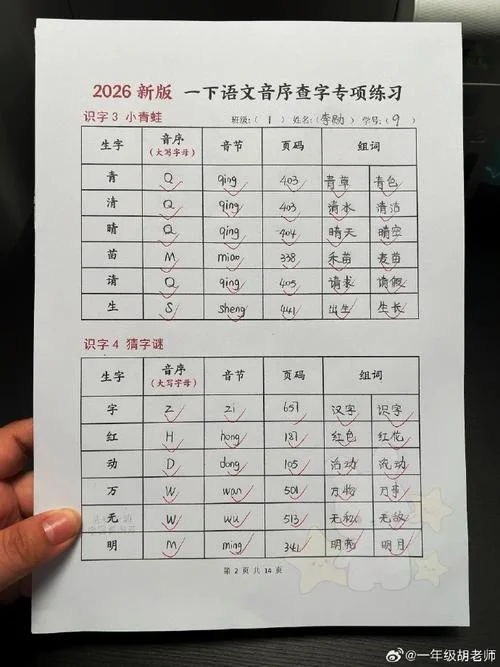 2026 新版 一下语文音序查字专项练习
识字 3 小青蛙 班级:( 1 ) 姓名:(李勋) 学号:( 9 )
生字 音序(大写字母) 音节 页码 组词
青 Q qing 403 青草 青色
清 Q qing 403 清水 清洁
晴 Q qing 404 晴天 晴空
苗 M miao 338 禾苗 麦苗
请 Q qing 405 请求 请假
生 S sheng 441 出生 生长
识字 4 猜字谜
生字 音序(大写字母) 音节 页码 组词
字 Z zi 657 汉字 识字
红 H hong 187 红色 红花
动 D dong 105 活动 流动
万 W wan 501 万物
无 W wu 513 无敌
明 M ming 341 明亮 明月
第 2 页 共 14 页
@一年级胡老师